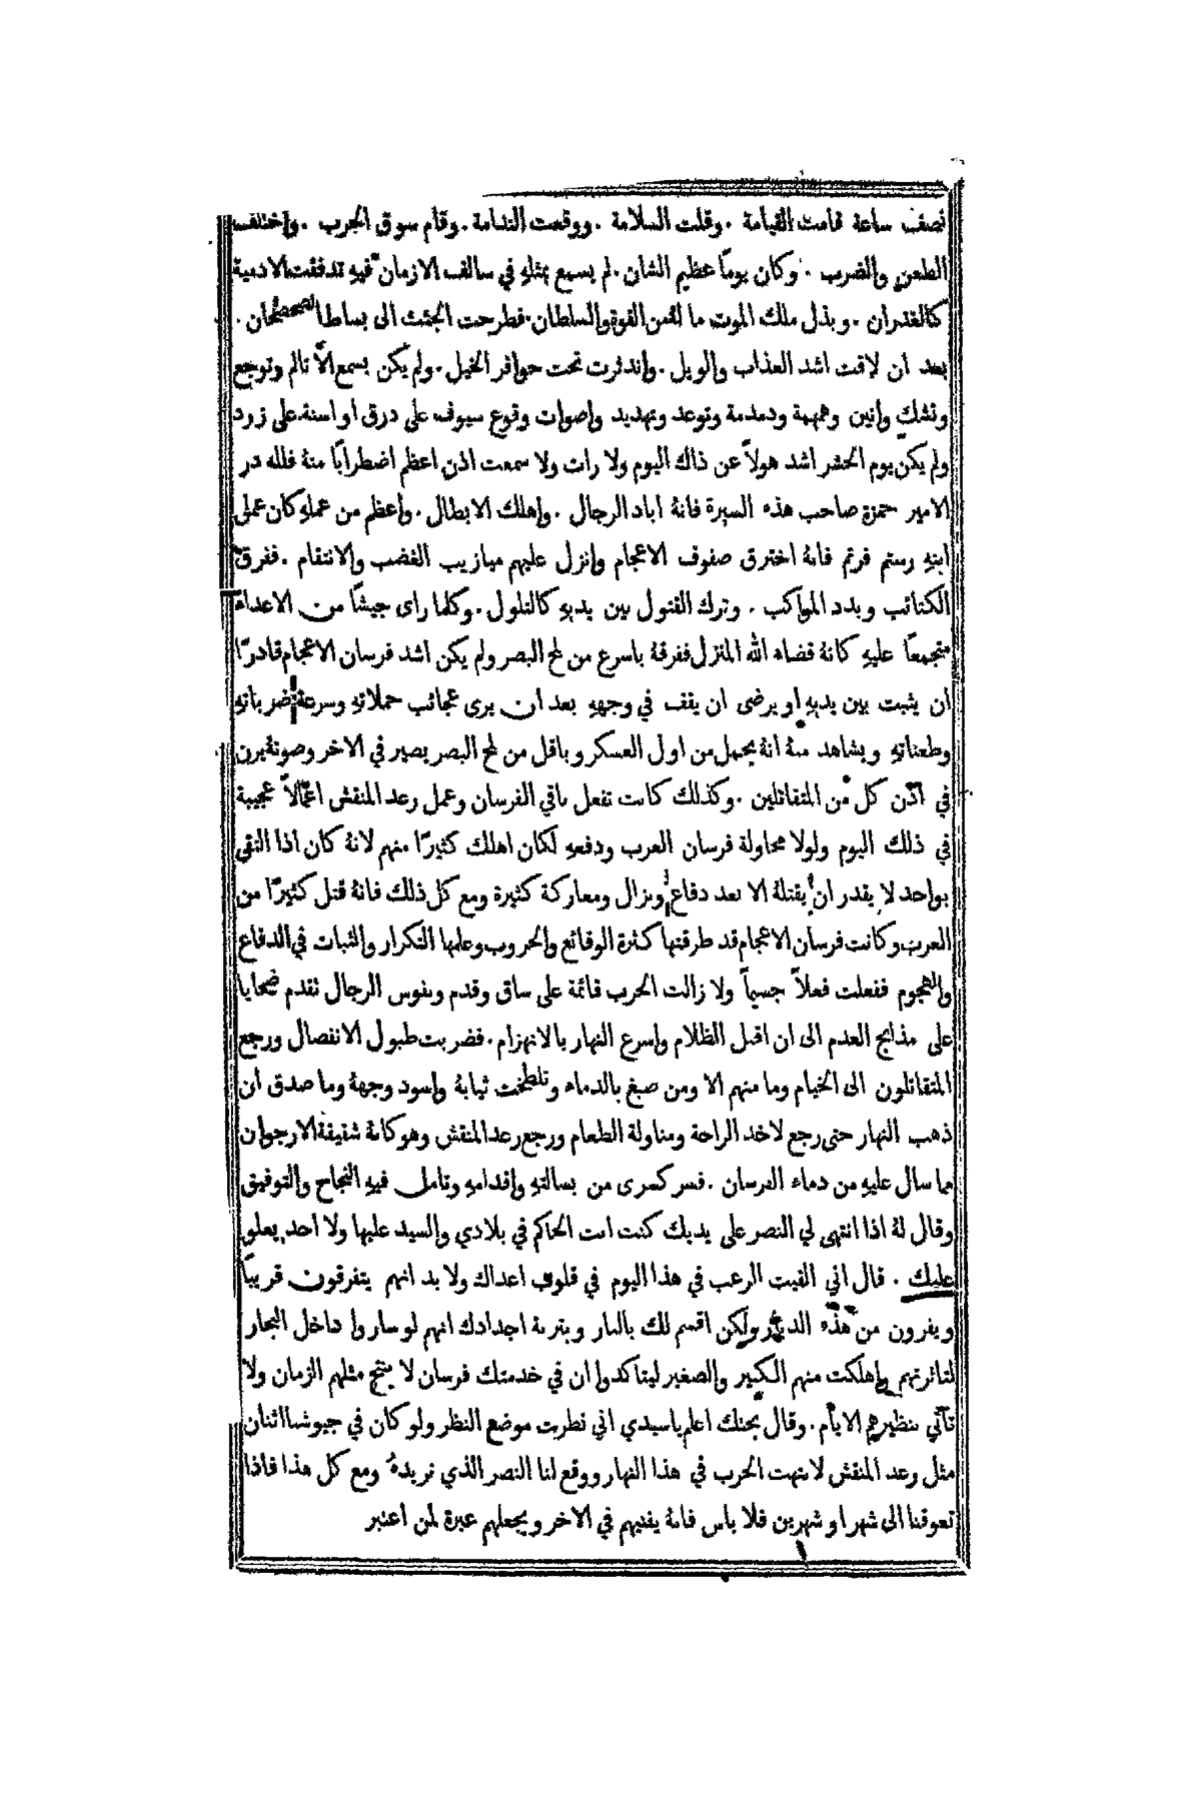 نصف ساعة قامت القيامة . وقلت السلامة . ووقعت الندامة . وقام سوق الحرب . واختلف
الطعن والضرب . وكان يوماً عظيم الشان . لم يسمع بمثلهِ في سالف الازمان فيهِ تدفقت الادمية
كالغدران . وبذل ملك الموت ما لهُ من القوة والسلطان . فطرحت الجثث الى بساط الصحصحان .
بعد ان لاقت اشد العذاب والويل . واندثرت تحت حوافر الخيل . ولم يكن يسمع الاَّ تالم وتوجع
وتشك وانين وهمهمة ودمدمة وتوعد وتهديد واصوات وقوع سيوف على درق او اسنة على زرد
ولم يكن يوم الحشر اشد هولاً عن ذاك اليوم ولا رات ولا سمعت اذن اعظم اضطراباً منهُ فلله در
الامير حمزة صاحب هذه السيرة فانهُ اباد الرجال . واهلك الابطال . واعظم من عملهِ كان عمل
ابنهِ رستم فرتم فانهُ اخترق صفوف الاعجام وانزل عليهم ميازيب الغضب والانتقام . ففرق
الكتائب وبدد المواكب . وترك القتول بين يديهِ كالتلول . وكلما راى جيشاً من الاعداء
متجمعاً عليهِ كانهُ قضاء الله المنزل ففرقهُ باسرع من لمح البصر ولم يكن اشد فرسان الاعجام قادراً
ان يثبت بين يديهِ او يرضى ان يقف في وجههِ بعد ان يرى عجائب حملاتهِ وسرعة ضرباتهِ
وطعناتهِ ويشاهد منهُ انهُ يحمل من اول العسكر وباقل من لمح البصر يصير في الاخر وصوتهُ يرن
في اذن كل من المتقاتلين . وكذلك كانت تفعل باقي الفرسان وعمل رعد المنقش اعمالاً عجيبة
في ذلك اليوم ولولا محاولة فرسان العرب ودفعهِ لكان اهلك كثيراً منهم لانهُ كان اذا التقى
بواحد لا يقدر ان يقتلهُ الا بعد دفاع ونزال ومعاركة كثيرة ومع كل ذلك فانهُ قتل كثيراً من
العرب وكانت فرسان الاعجام قد طرقتها كثرة الوقائع والحروب وعلمها التكرار والثبات في الدفاع
والهجوم ففعلت فعلاً جسيماً ولا زالت الحرب قائمة على ساق وقدم ونفوس الرجال تقدم ضحايا
على مذابح العدم الى ان اقبل الظلام واسرع النهار بالانهزام . فضربت طبول الانفصال ورجع
المتقاتلون الى الخيام وما منهم الا ومن صبغ بالدماء وتلطخت ثيابهُ واسود وجههُ وما صدق ان
ذهب النهار حتى رجع لاخذ الراحة ومناولة الطعام ورجع رعد المنقش وهو كانهُ شقيقة الارجوان
مما سال عليهِ من دماء الفرسان . فسر كسرى من بسالتهِ واقدامهِ وتامل فيهِ النجاح والتوفيق
وقال لهُ اذا انتهى لي النصر على يديك كنت انت الحاكم في بلادي والسيد عليها ولا احد يعلو
عليك . قال اني القيت الرعب في هذا اليوم في قلوب اعداك ولا بد انهم يتفرقون قريباً
ويفرون من هذه ولكن اقسم لك بالنار وبتربة اجدادك انهم لو ساروا داخل البحار
لتاثرتهم واهلكت منهم الكبير والصغير ليتاكدوا ان في خدمتك فرسان لا ينتج مثلهم الزمان ولا
تأتي بنظيرهم الايام . وقال بختك اعلم يا سيدي اني نظرت موضع النظر ولو كان في جيوشنا اثنان
مثل رعد المنقش لانتهت الحرب في هذا النهار ووقع لنا النصر الذي نريدهُ ومع كل هذا فاذا
تعوقنا الى شهر او شهرين فلا باس فانهُ يفنيهم في الاخر ويجعلهم عبرة لمن اعتبر